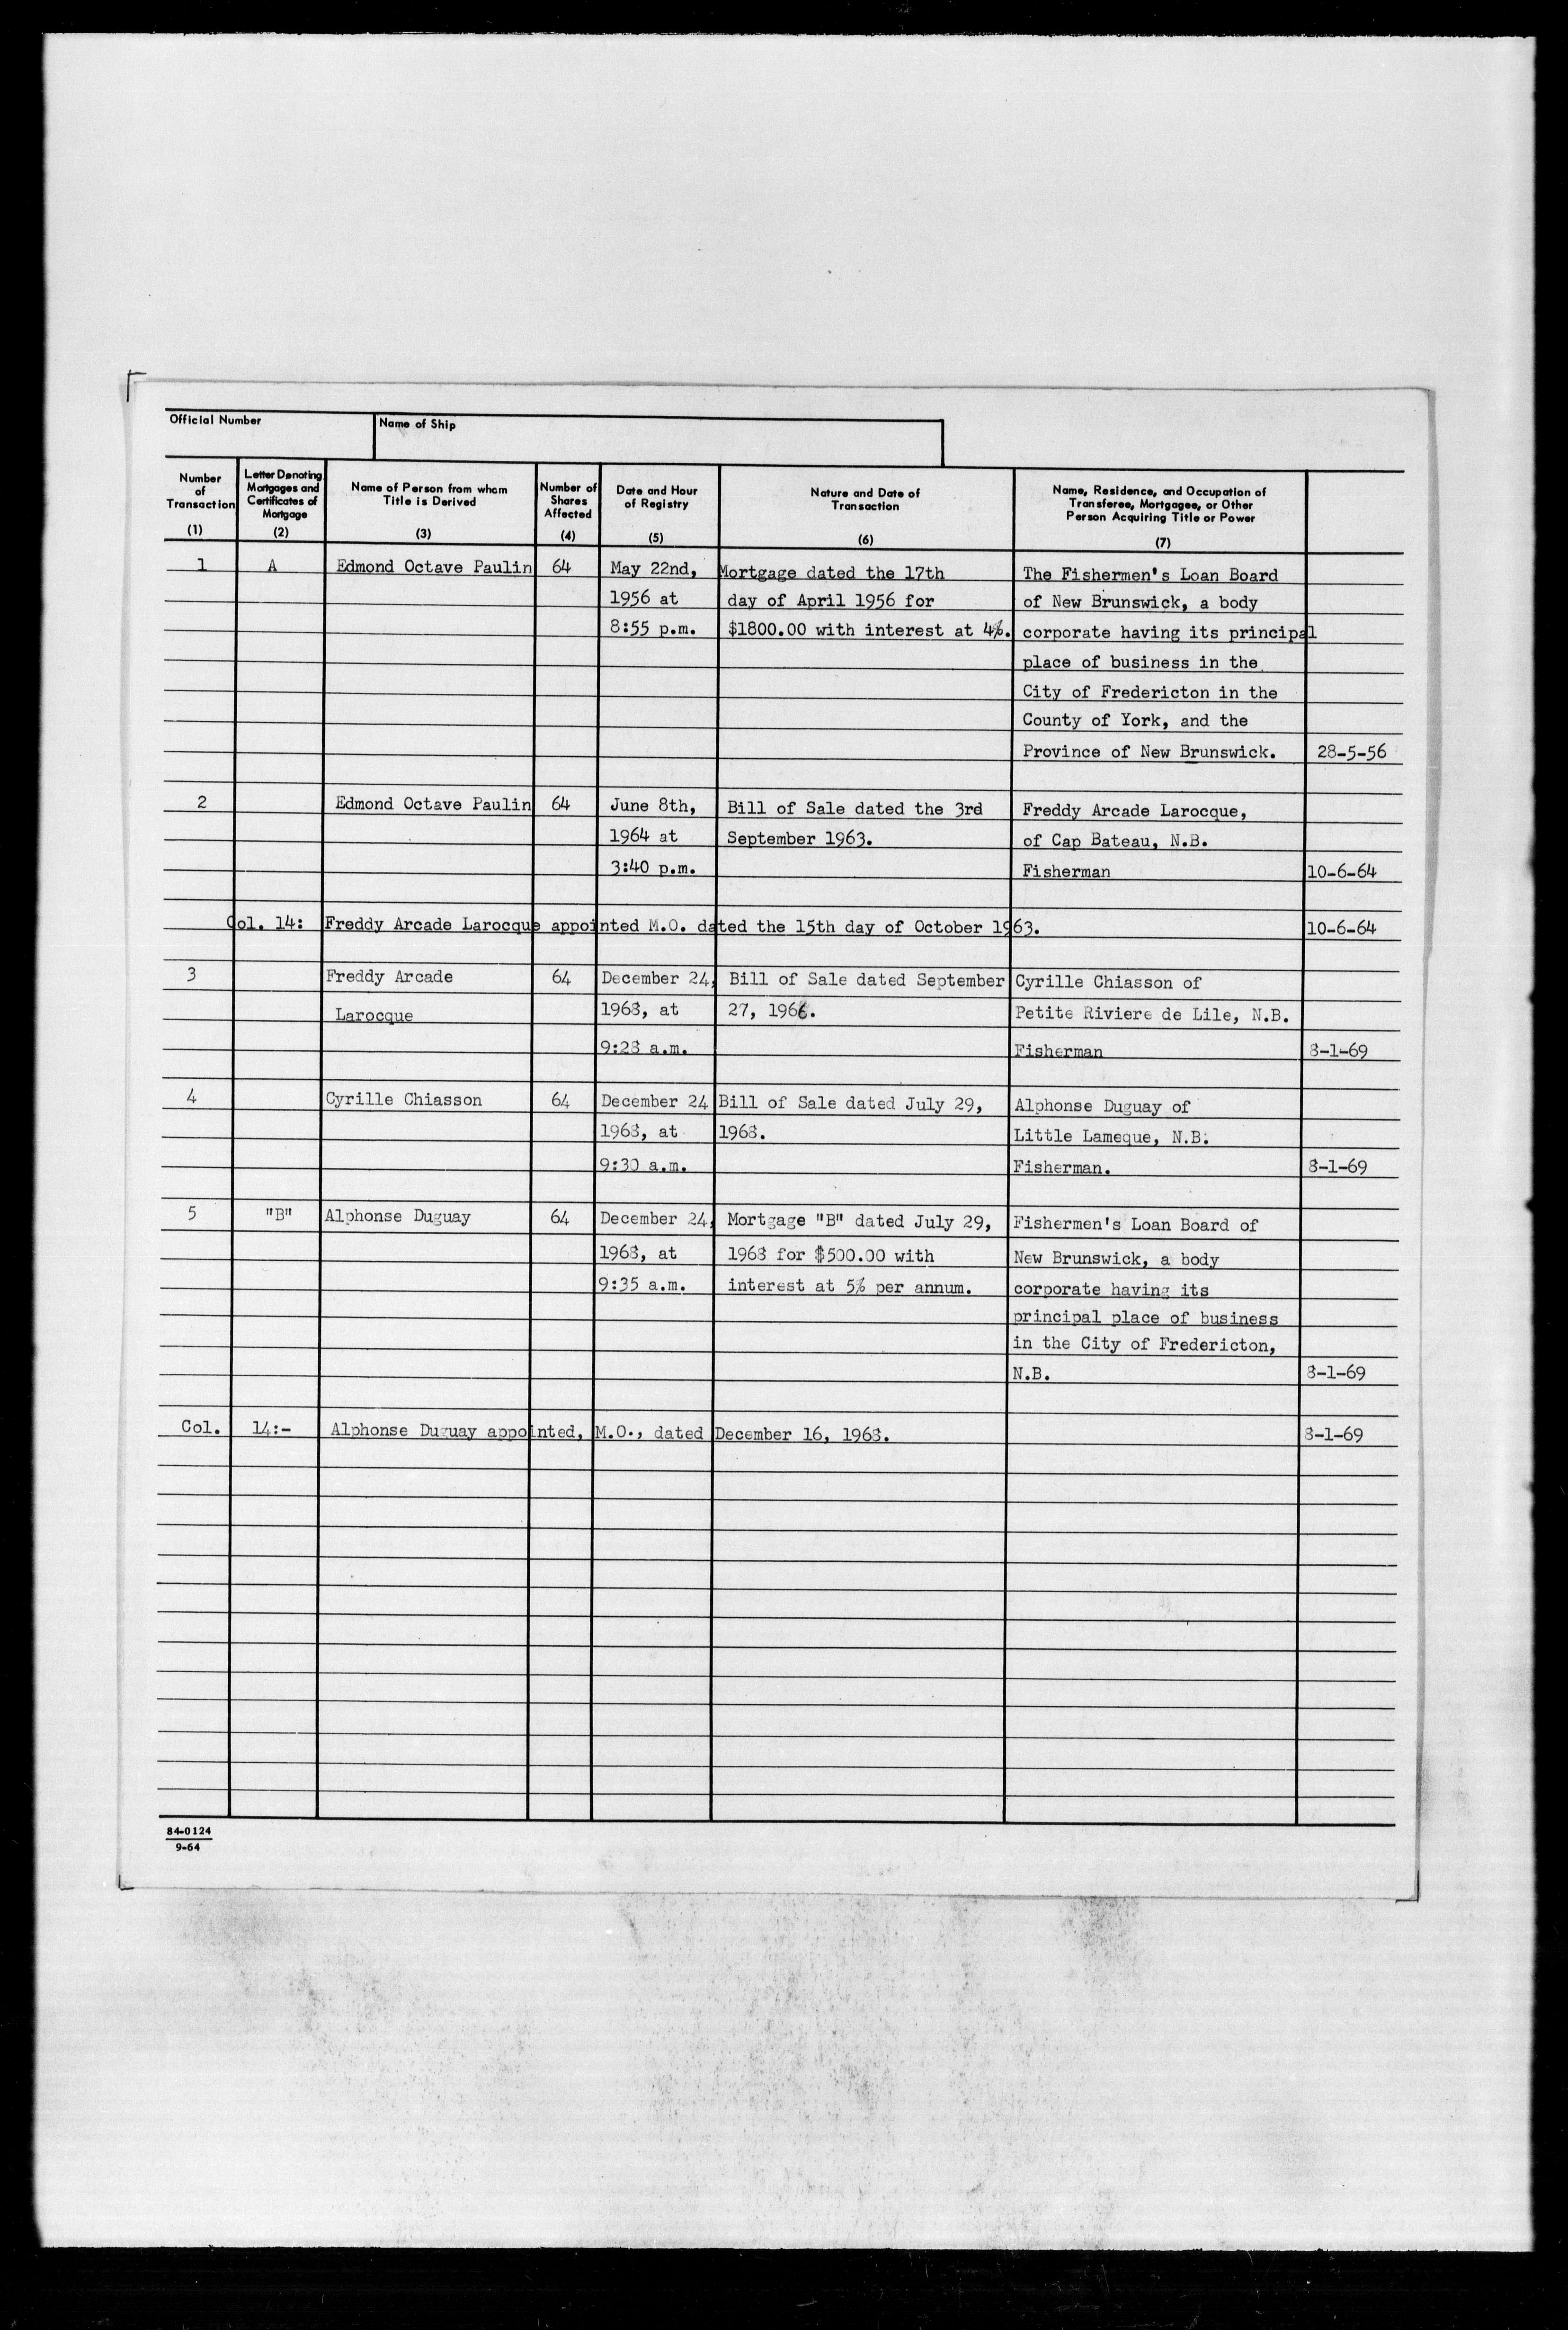 Official Number
Name of Ship
Number of Transaction (1)
Letter Denoting Mortgages and Certificates of Mortgage (2)
Name of Person from whom Title is Derived (3)
Number of Shares Affected (4)
Date and Hour of Registry (5)
Nature and Date of Transaction (6)
Name, Residence, and Occupation of Transferee, Mortgagee, or Other Person Acquiring Title or Power (7)
1 A Edmond Octave Paulin 64 May 22nd, Mortgage dated the 17th The Fishermen's Loan Board
1956 at day of April 1956 for of New Brunswick, a body
8:55 p.m. $1800.00 with interest at 4%. corporate having its principal
place of business in the
City of Fredericton in the
County of York, and the
Province of New Brunswick. 28-5-56
2 Edmond Octave Paulin 64 June 8th, Bill of Sale dated the 3rd Freddy Arcade Larocque,
1964 at September 1963. of Cap Bateau, N.B.
3:40 p.m. Fisherman 10-6-64
Col. 14: Freddy Arcade Larocque appointed M.O. dated the 15th day of October 1963. 10-6-64
3 Freddy Arcade 64 December 24, Bill of Sale dated September Cyrille Chiasson of
Larocque 1968, at 27, 1966. Petite Riviere de Lile, N.B.
9:28 a.m. Fisherman 8-1-69
4 Cyrille Chiasson 64 December 24 Bill of Sale dated July 29, Alphonse Duguay of
1968, at 1968. Little Lameque, N.B.
9:30 a.m. Fisherman. 8-1-69
5 "B" Alphonse Duguay 64 December 24, Mortgage "B" dated July 29, Fishermen's Loan Board of
1968, at 1968 for $500.00 with New Brunswick, a body
9:35 a.m. interest at 5% per annum. corporate having its
principal place of business
in the City of Fredericton,
N.B. 8-1-69
Col. 14:- Alphonse Duguay appointed, M.O., dated December 16, 1968. 8-1-69
84-0124
9-64